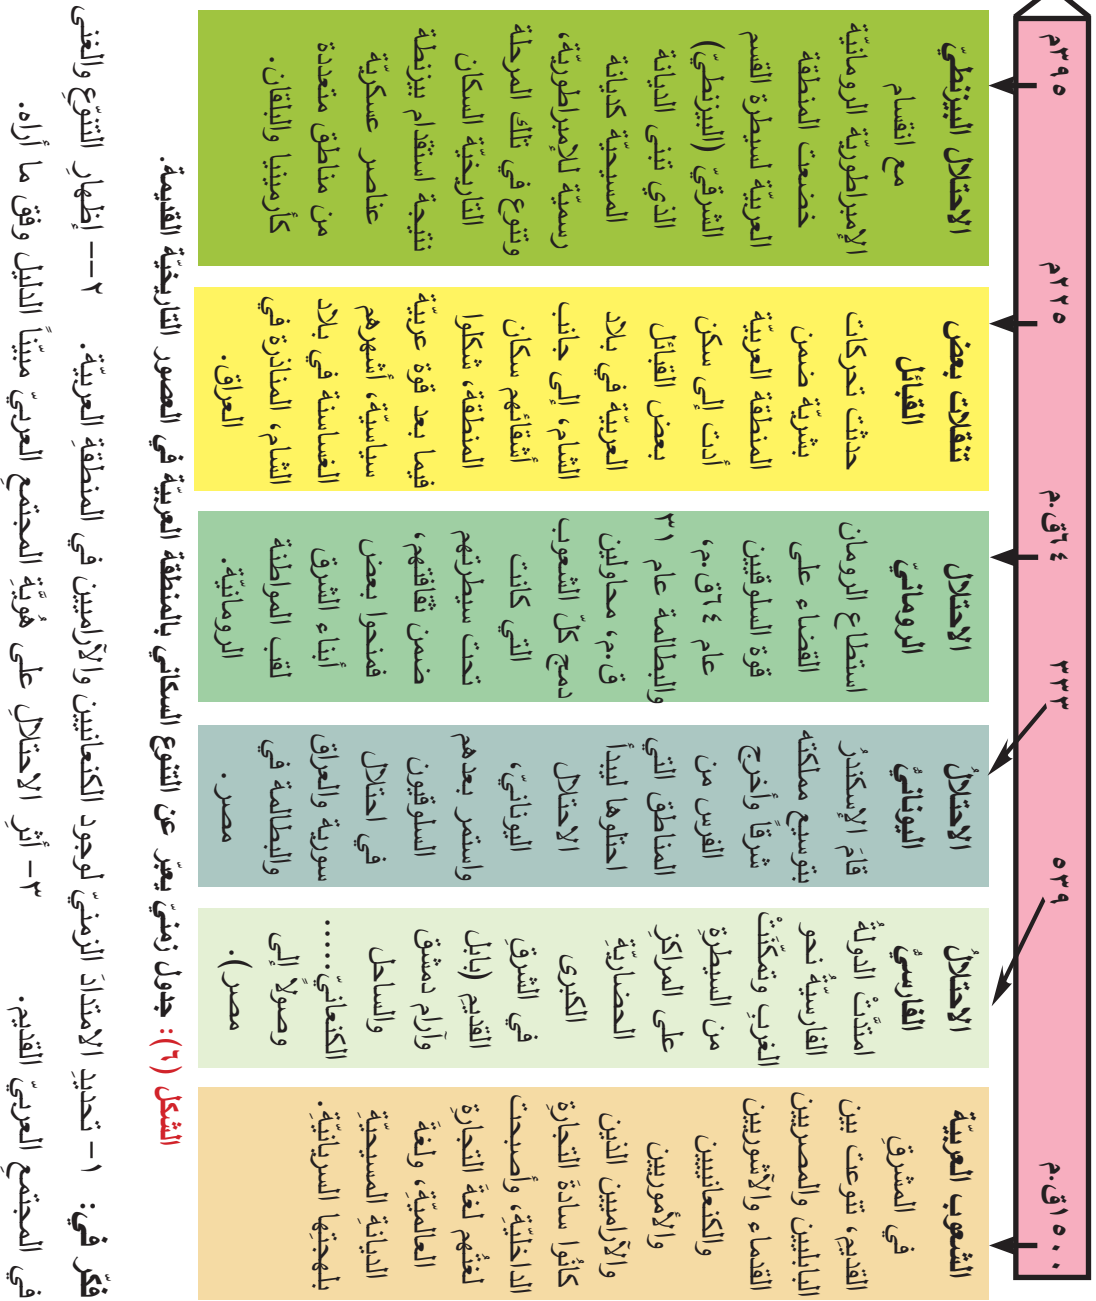 ١٥٠٠ق.م
٥٣٩
٣٣٣
٦٤ق.م
٢٢٥م
٣٩٥م
الشعوب العربيّة
في المشرقِ
القديمِ، تنوعت بين
البابليين والمصريين
القدماء والآشوريين
والكنعانيين
والأموريين
والآراميين الذين
كانُوا سادةَ التجارةِ
الداخليّة، وأصبحت
لغتُهم لغةَ التجارةِ
العالميّةِ، ولغةَ
الديانةِ المسيحيّةِ
بلهجتِها السريانيّةِ.
الاحتلالُ
الفارسيُّ
امتدَّتْ الدولةُ
الفارسيّةُ نحو
الغربِ وتمكّنَتْ
من السيطرةِ
على المراكزِ
الحضاريّةِ
الكبرى
في الشرقِ
القديمِ (بابل
وآرام دمشق
والساحل
الكنعانيّ.....
وصولاً إلى
مصر).
الاحتلالُ
اليونانيُّ
قامَ الإسكندرُ
بتوسيع مملكته
شرقاً وأخرج
الفرس من
المناطق التي
احتلوها ليبدأ
الاحتلال
اليونانيّ،
واستمر بعدهم
السلوقيون
في احتلال
سورية والعراق
والبطالمة في
مصر.
الاحتلال
الرومانيّ
استطاع الرومان
القضاء على
قوة السلوقيين
عام ٦٤ق.م،
والبطالمة عام ٣١
ق.م، محاولين
دمج كلّ الشعوب
التي كانت
تحت سيطرتهم
ضمن ثقافتهم،
فمنحوا بعض
أبناء الشرق
لقب المواطنة
الرومانيّة.
تنقلات بعض
القبائل
حدثت تحركات
بشريّة ضمن
المنطقة العربيّة
أدت إلى سكن
بعض القبائل
العربيّة في بلاد
الشام، إلى جانب
أشقائهم سكان
المنطقة، شكلوا
فيما بعد قوة عربيّة
سياسيّة، أشهرهم
الغساسنة في بلاد
الشام، المناذرة في
العراق.
الاحتلال البيزنطيّ
مع انقسام
الإمبراطوريّة الرومانيّة
خضعت المنطقة
العربيّة لسيطرة القسم
الشرقيّ (البيزنطيّ)
الذي تبنى الديانة
المسيحيّة كديانة
رسميّة للإمبراطوريّة،
وتنوع في تلك المرحلة
التاريخيّة السكان
نتيجة استقدام بيزنطة
عناصر عسكريّة
من مناطق متعددة
كأرمينيا والبلقان.
الشكل (٦): جدول زمنيّ يعبّر عن التنوع السكاني بالمنطقة العربيّة في العصور التاريخيّة القديمة.
فكّر في: ١- تحديدِ الامتدادَ الزمنيّ لوجود الكنعانيين والآراميين في المنطقةِ العربيّة. ٢-- إظهارِ التنوّعِ والغنى
في المجتمعِ العربيّ القديمِ. ٣- أثرِ الاحتلالِ على هُويّةِ المجتمعِ العربيّ مبيّناً الدليل وفق ما أراه.